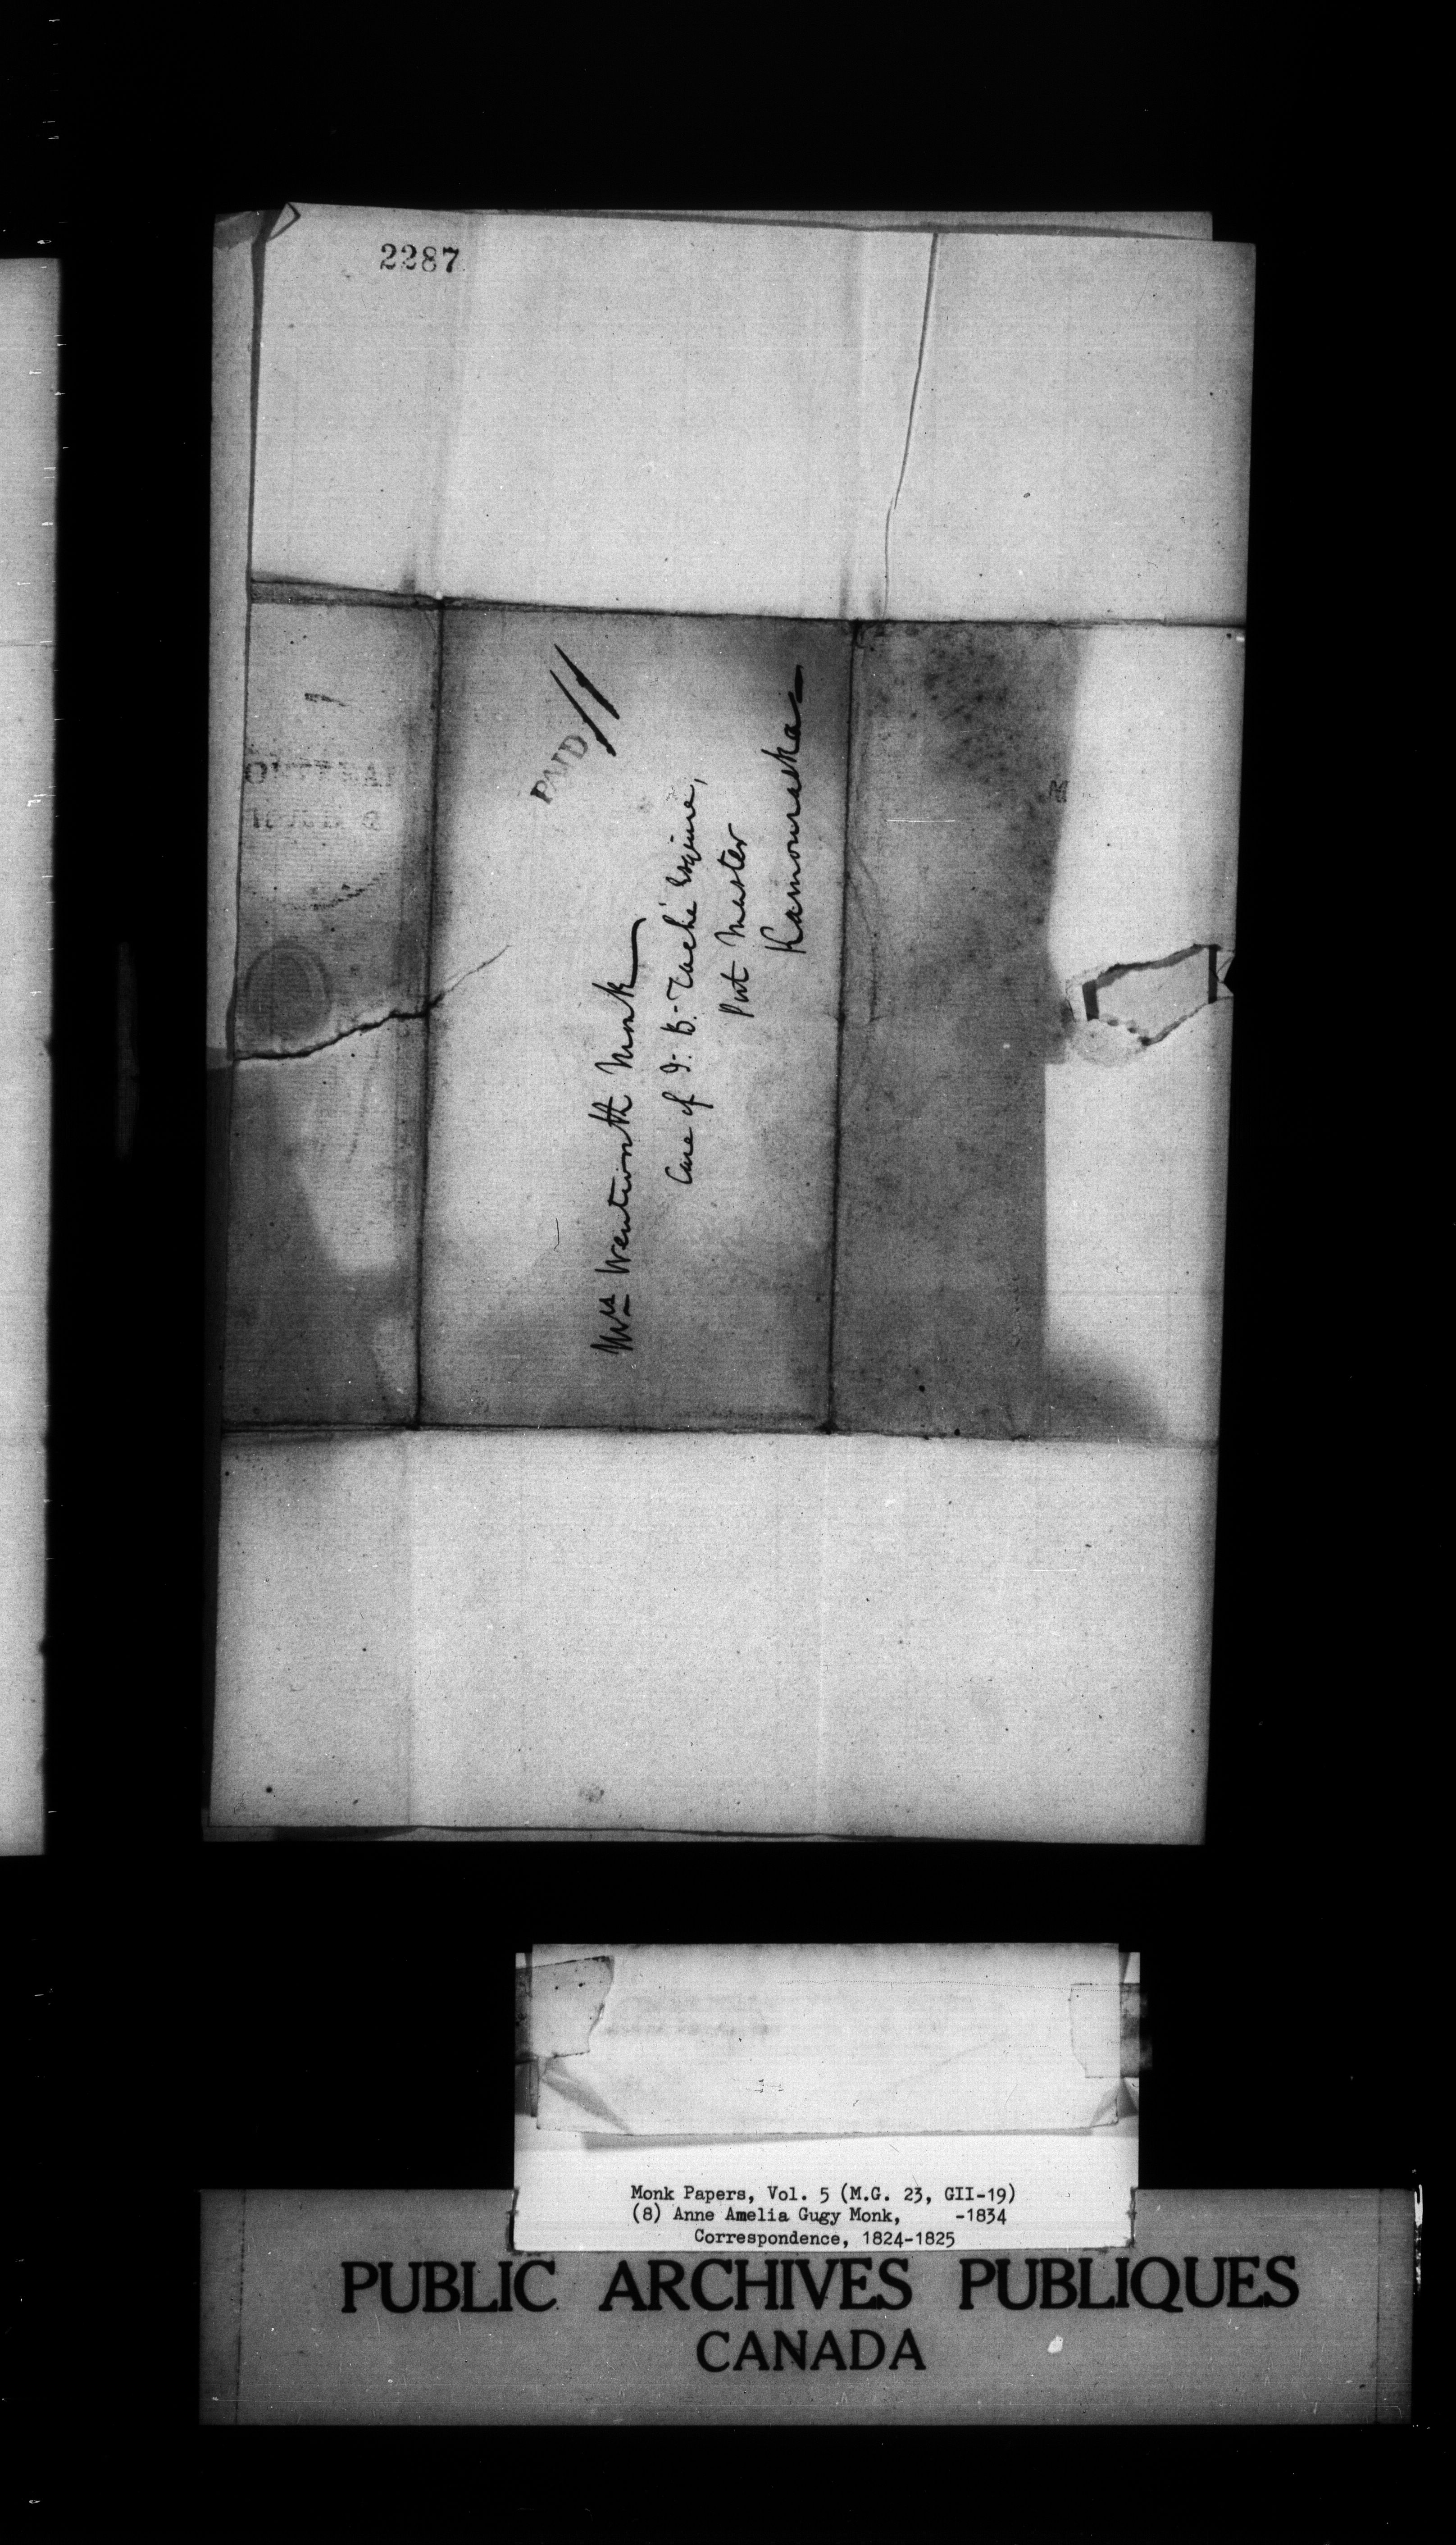 2287
PAID //
Mrs Wentworth Monk
Care of J. B. Taché Esquire,
Post Master
Kamouraska
Monk Papers, Vol. 5 (M.G. 23, GII-19)
(8) Anne Amelia Gugy Monk, -1834
Correspondence, 1824-1825
PUBLIC ARCHIVES PUBLIQUES
CANADA